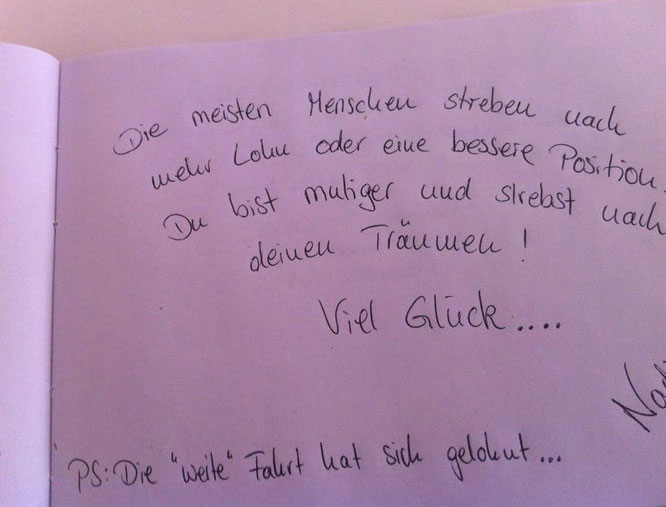 Die meisten Menschen streben nach
mehr Lohn oder eine bessere Position.
Du bist mutiger und strebst nach
deinen Träumen!
Viel Glück....
PS: Die "weite" Fahrt hat sich gelohnt...